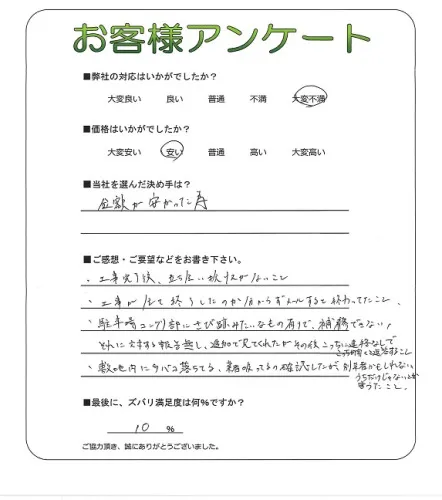 お客様アンケート
■弊社の対応はいかがでしたか？
大変良い 良い 普通 不満 大変不満
■価格はいかがでしたか？
大変安い 安い 普通 高い 大変高い
■当社を選んだ決め手は？
金額が安かった事
■ご感想・ご要望などをお書き下さい。
・工事完了後、立ち会い がないこと
・工事が 終了したのか分からずメールすると終わってたこと、
・駐車場コンクリ部にさび跡みたいなもの有りで、補修できない、
それに対する報告無し、追加で見てくれたがその後こっちに連絡なしで
こっちから連絡すること
・敷地内にタバコ落ちてる、 吸ってるの確認したが、別業者かもしれない、
うちだけじゃないとか
言うたこと。
■最後に、ズバリ満足度は何%ですか？
10 %
ご協力頂き、誠にありがとうございました。